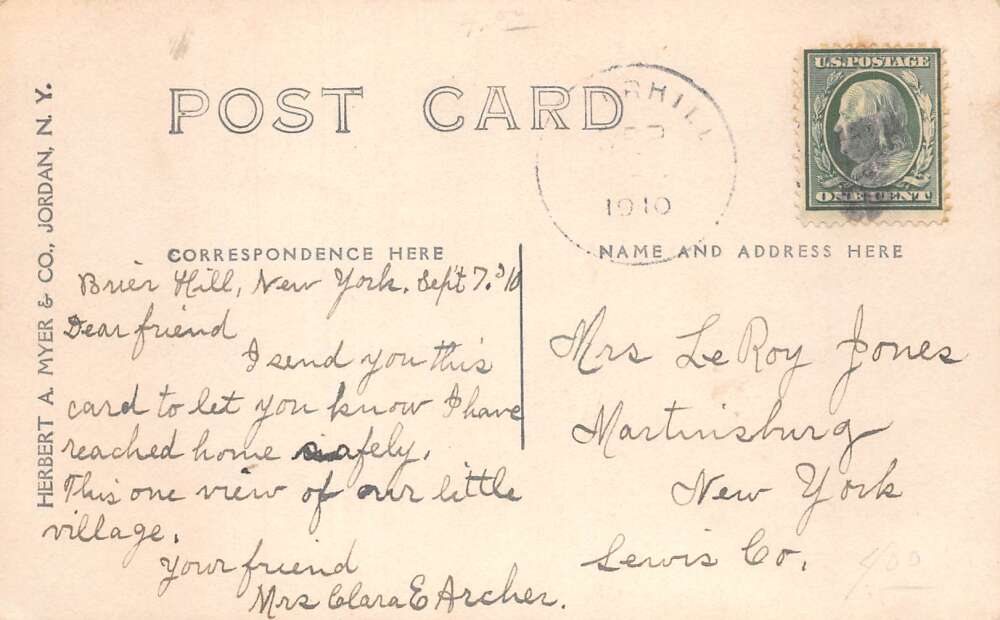 POST CARD
U.S. POSTAGE
ONE CENT
1910
HERBERT A. MYER & CO., JORDAN, N. Y.
CORRESPONDENCE HERE
Brier Hill, New York, Sept 7. '10
Dear friend
I send you this
card to let you know I have
reached home safely.
This one view of our little
village.
Your friend
Mrs Clara E Archer.
NAME AND ADDRESS HERE
Mrs LeRoy Jones
Martinsburg
New York
Lewis Co.
4.00